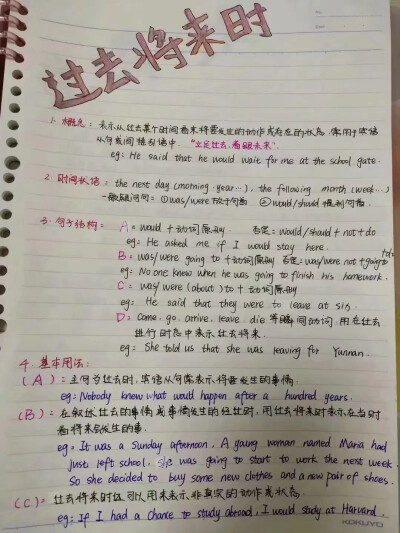 过去将来时
1. 概念: 表示从过去某个时间看来将要发生的动作或存在的状态。常用于宾语
从句或间接引语中 "立足过去,着眼未来".
eg: He said that he would wait for me at the school gate.
2. 时间状语: the next day (morning. year...), the following month (week...)
一般疑问句: ①was/were放于句首 ②would/should 提到句首.
3. 句子结构: A= would + 动词原形. 否定= would/should + not + do
eg: He asked me if I would stay here.
B= was/were going to + 动词原形 否定= was/were not + going to + do
eg: No one knew when he was going to finish his homework.
C= was/were (about) to + 动词原形
eg: He said that they were to leave at six.
D= come. go. arrive. leave. die 等瞬间动词. 用在过去
进行时态中表示过去将来.
eg: She told us that she was leaving for Yunnan.
4. 基本用法:
(A): 主句为过去时, 宾语从句常表示将要发生的事情
eg: Nobody knew what would happen after a hundred years.
(B): 在叙述过去的事情或事情发生的经过时, 用过去将来时表示在当时
看将来会发生的事.
eg: It was a Sunday afternoon. A young woman named Maria had
just left school, She was going to start to work the next week.
So she decided to buy some new clothes and a new pair of shoes.
(C)= 过去将来时也可以用来表示非真实的动作或状态.
eg: If I had a chance to study abroad, I would study at Harvard.
KOKUYO